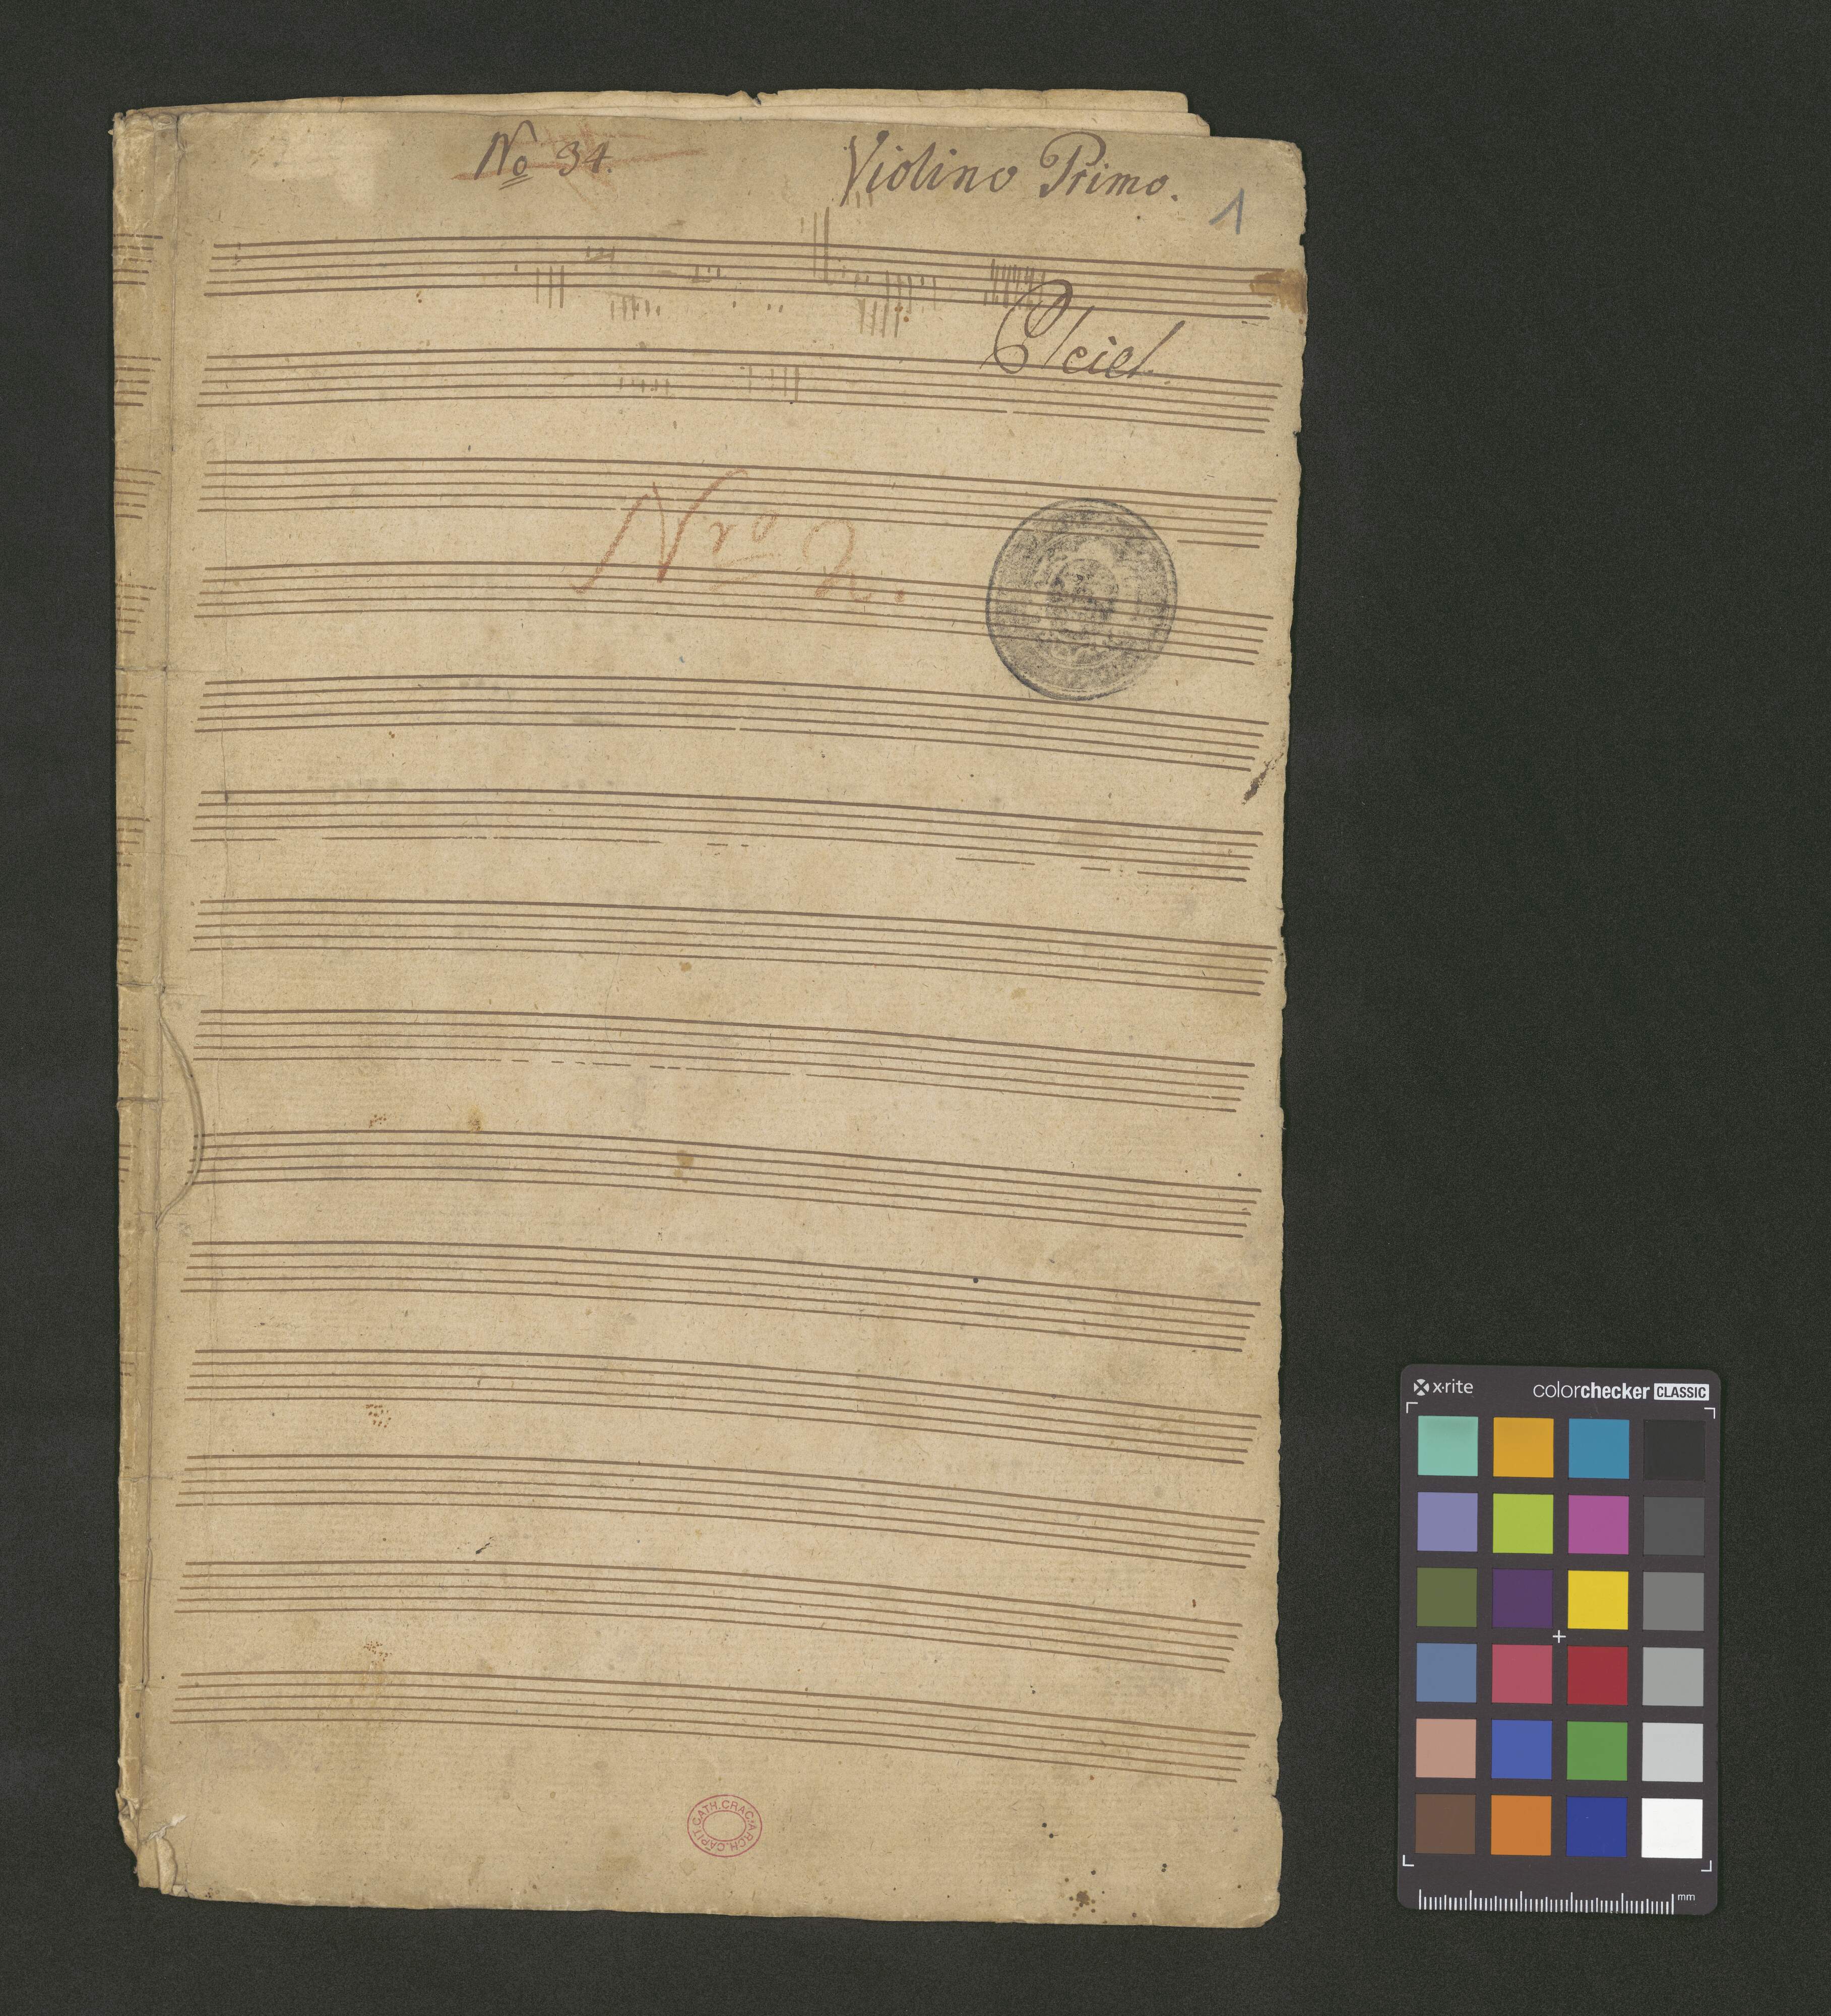 No 34.
Violino Primo.
1
Nro 2.
ARCH.CAPIT.CATH.CRAC.
x·rite
colorchecker CLASSIC
mm